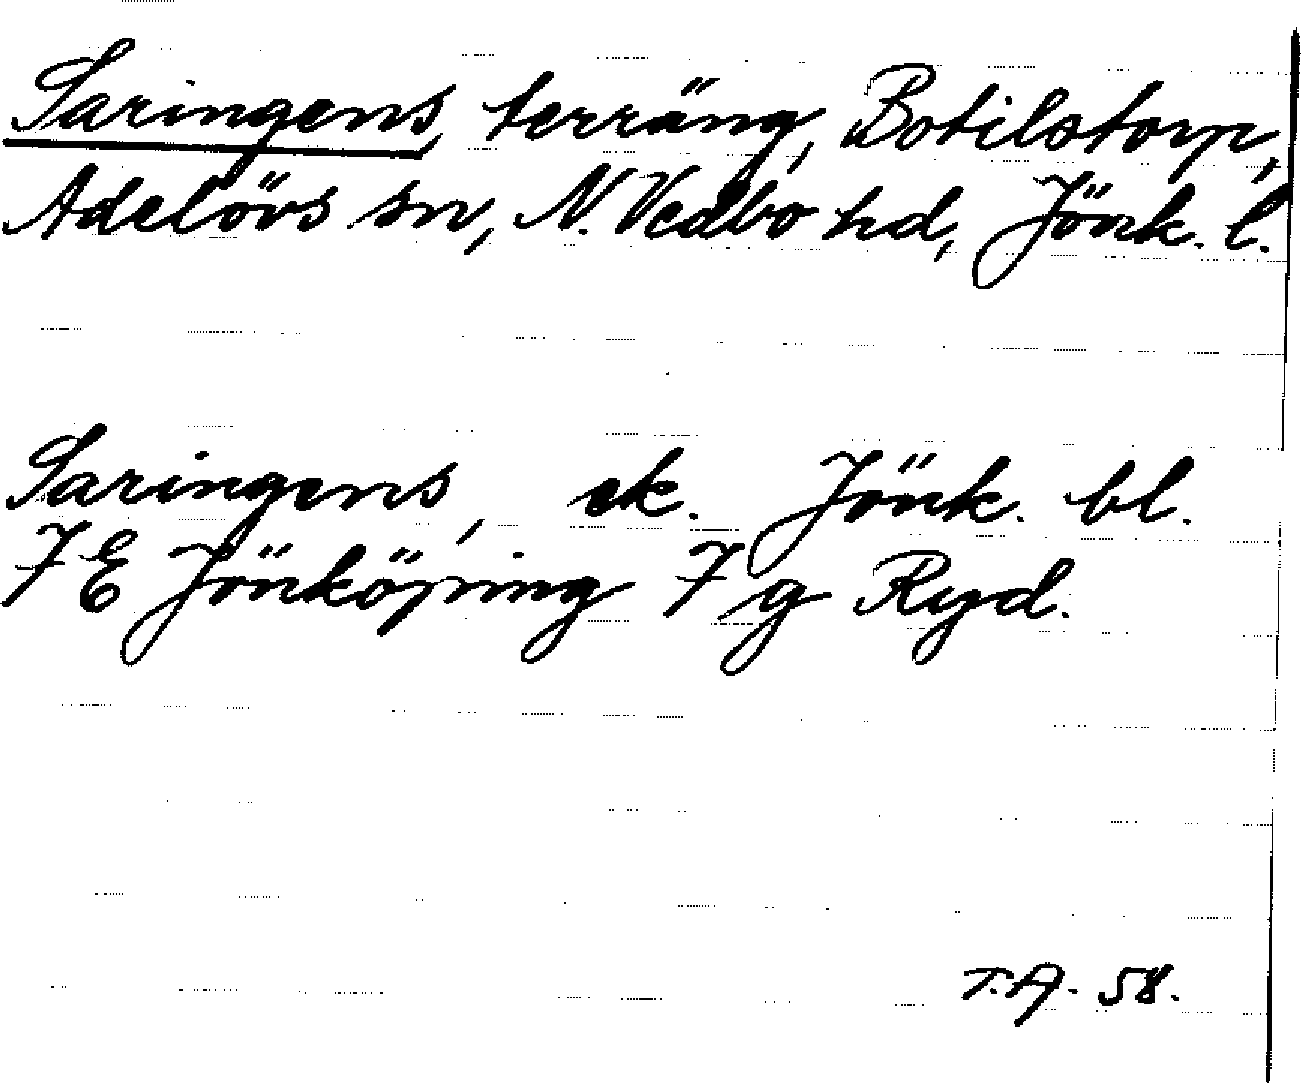 Saringens terräng, Botilstorp,
Adelövs sn, N. Vedbo hd, Jönk. l.
Saringens, ek. Jönk. bl.
7 E Jönköping 7 g Ryd.
T.A. 58.